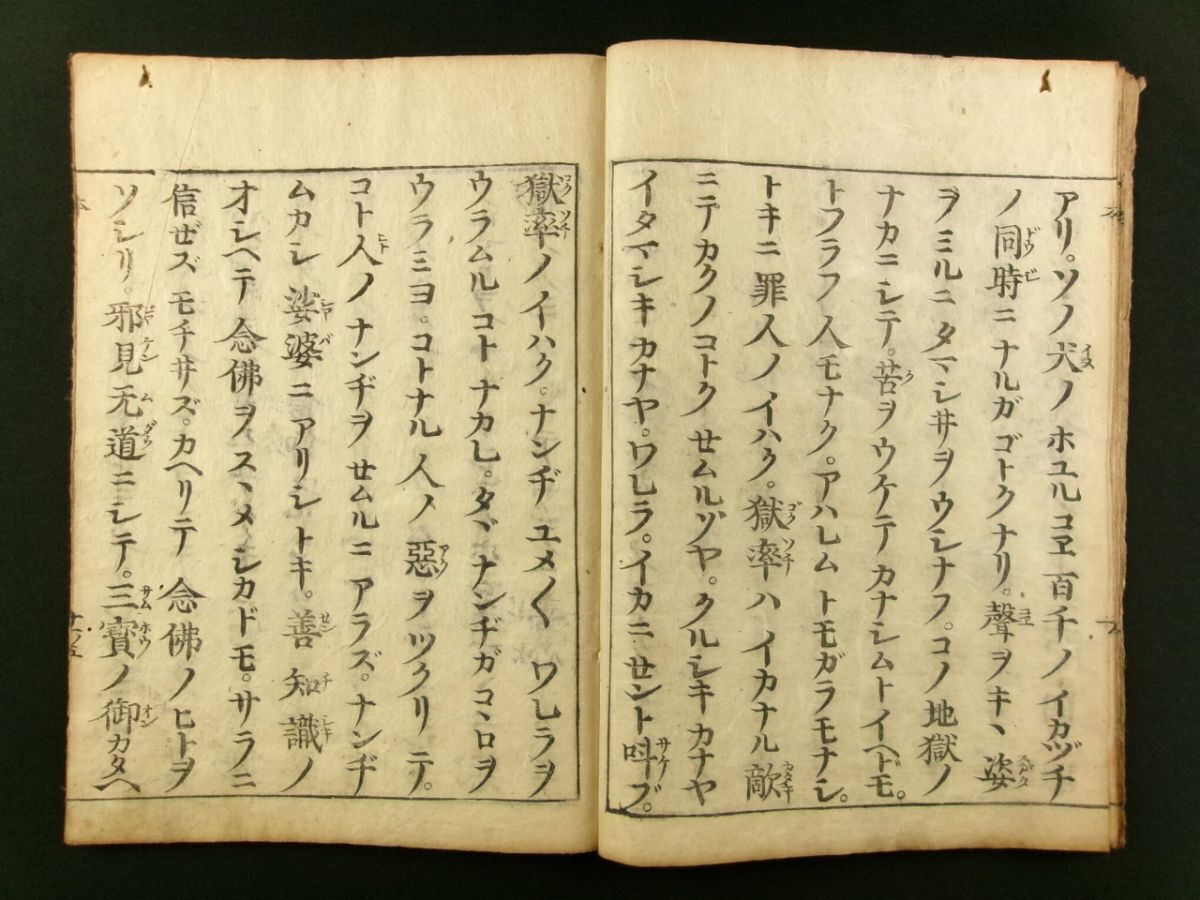 アリ。ソノ犬ノホユルコヱ百千ノイカヅチ
ノ同時ニナルガゴトクナリ。聲ヲキヽ姿
ヲミルニタマシヰヲウシナフ。コノ地獄ノ
ナカニシテ。苦ヲウケテカナシムトイヘドモ。
トフラフ人モナク。アハレムトモガラモナシ。
トキニ罪人ノイハク。獄率ハイカナル敵
ニテカクノコトクせムルゾヤ。クルシキカナヤ
イタマシキカナヤ。ワレラ。イカニせント叫ブ。
獄率ノイハク。ナンヂユメ〱ワレラヲ
ウラムルコトナカレ。タヾナンヂガコヽロヲ
ウラミヨ。コトナル人ノ惡ヲツクリテ。
コト人ノナンヂヲせムルニアラズ。ナンヂ
ムカシ娑婆ニアリシトキ。善知識ノ
オシヘテ念佛ヲスヽメシカドモ。サラニ
信ぜズモチヰズ。カヘリテ念佛ノヒトヲ
ソシリ。邪見无道ニシテ。三寳ノ御カタヘ